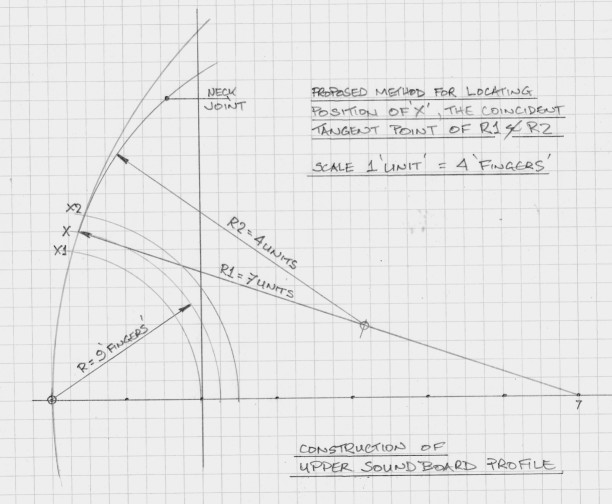 NECK
JOINT
PROPOSED METHOD FOR LOCATING
POSITION OF 'X', THE COINCIDENT
TANGENT POINT OF R1 & R2
SCALE 1 'UNIT' = 4 'FINGERS'
X2
X
X1
R2 = 4 UNITS
R1 = 7 UNITS
R = 9 'FINGERS'
7
CONSTRUCTION OF
UPPER SOUNDBOARD PROFILE